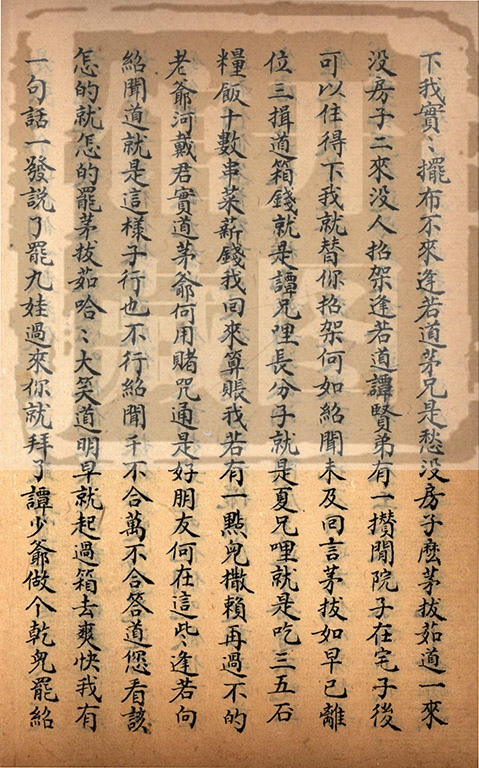 下我實〻擺布不來逢若道茅兄是愁没房子麽茅拔茹道一來
没房子二來没人招架逢若道譚賢弟有一攢閒院子在宅子後
可以住得下我就替你招架何如紹聞未及回言茅拔如早已離
位三揖道箱錢就是譚兄哩長分子就是夏兄哩就是吃三五石
糧飯十數串菜薪錢我回來算賬我若有一點兒撒賴再過不的
老爺河戴君實道茅爺何用賭咒通是好朋友何在這些〻逢若向
紹聞道就是這樣子行也不行紹聞千不合萬不合答道您看該
怎的就怎的罷茅拔茹哈〻大笑道明早就起過箱去爽快我有
一句話一發説了罷九娃過來你就拜了譚少爺做个乾兒罷紹